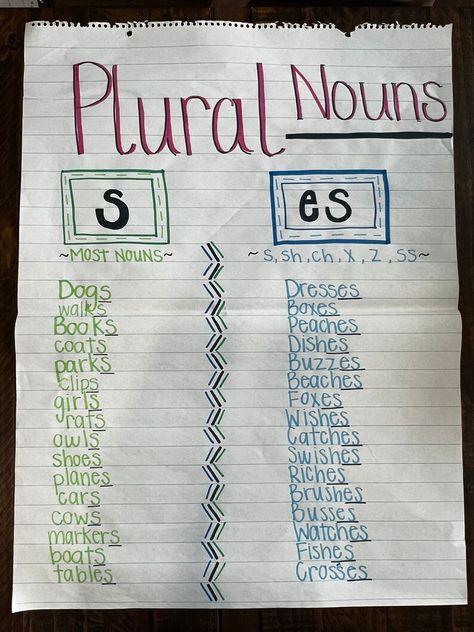 Plural Nouns
s
~MOST NOUNS~
Dogs
walks
Books
coats
parks
clips
girls
rats
owls
shoes
planes
cars
cows
markers
boats
tables
es
~ s, sh, ch, x, z, ss ~
Dresses
Boxes
Peaches
Dishes
Buzzes
Beaches
Foxes
Wishes
Catches
Swishes
Riches
Brushes
Busses
Watches
Fishes
Crosses